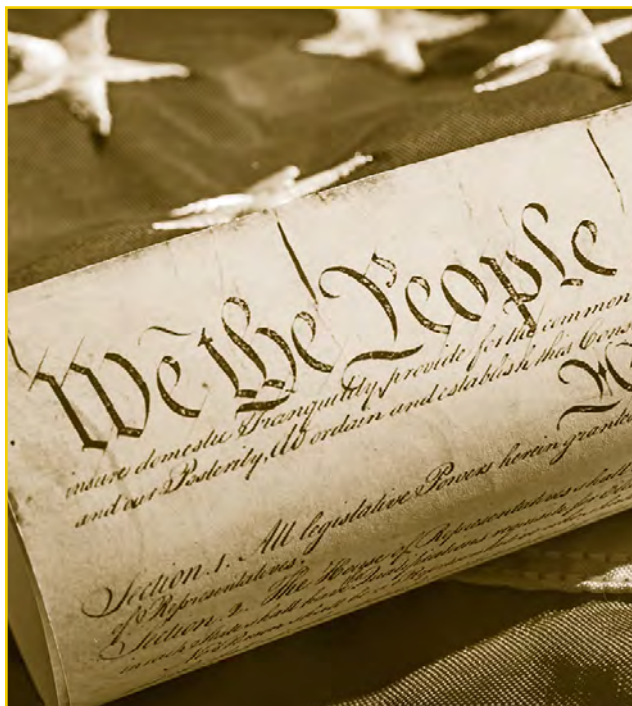 We the People
insure domestic Tranquility, provide for the common
and our Posterity, do ordain and establish this Cons
Section. 1. All legislative Powers herein grante
of Representatives.
Section. 2. The House of Representatives shall
in each State shall have